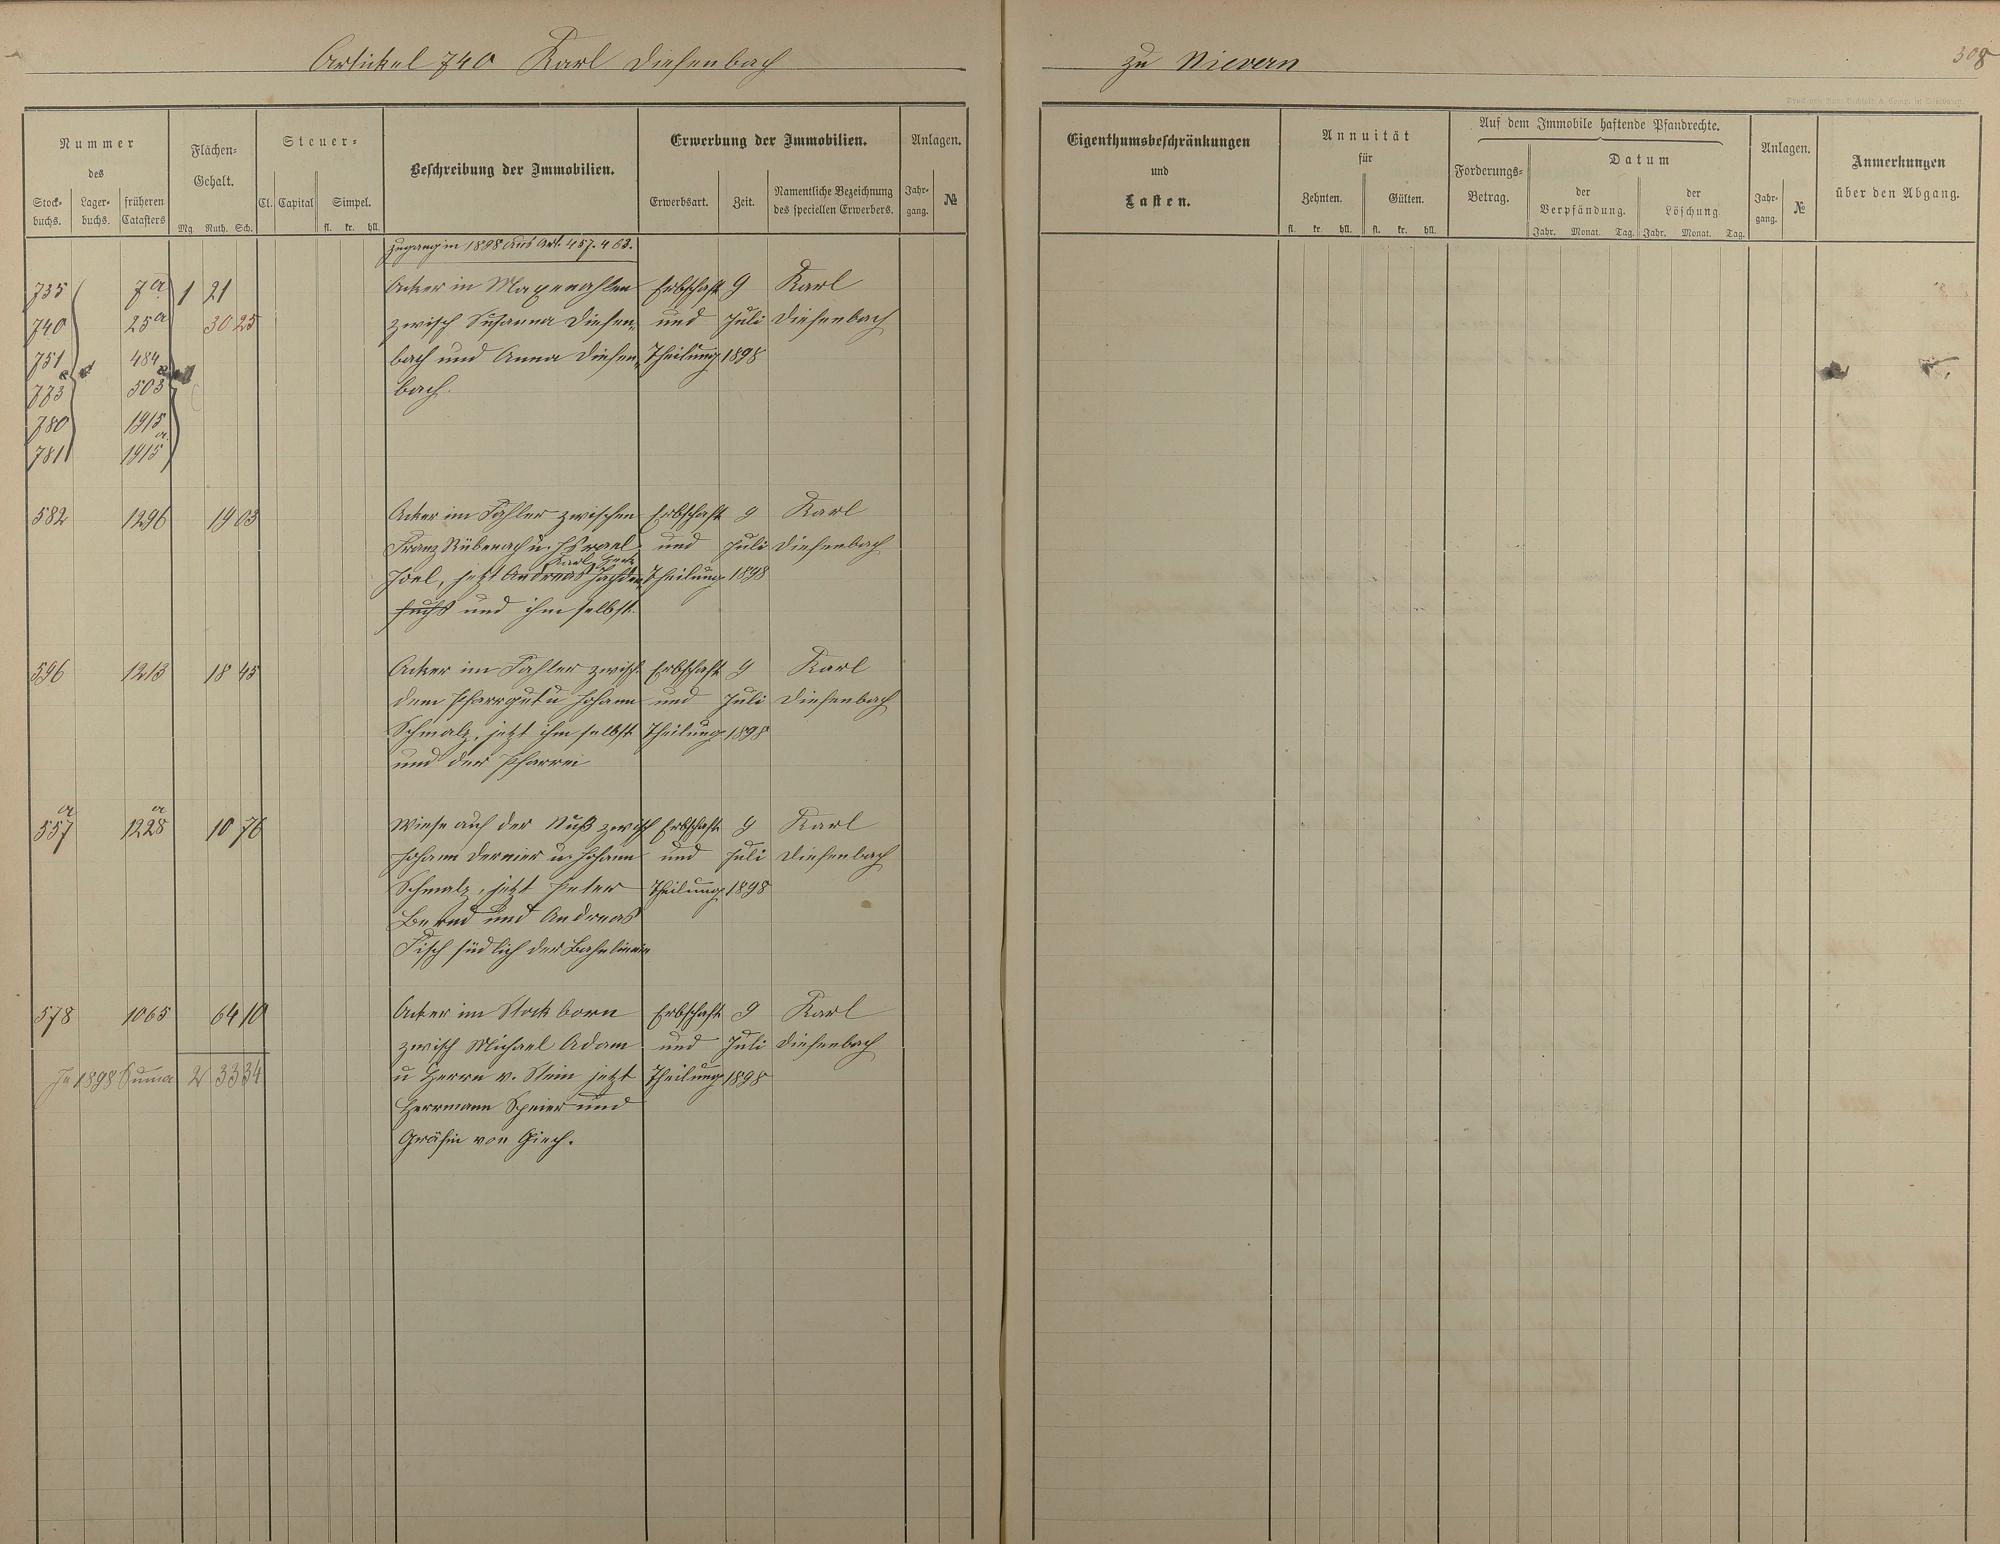 Artickel 740 Karl Diefenbach zu Nievern
308
Nummer
des
Stock-
buchs.
Lager-
buchs.
früheren
Catasters
Flächen-
Gehalt.
Mg. Ruth. Sch.
Steuer-
Cl. Capital Simpel.
fl. kr. hll.
Beschreibung der Immobilien.
Erwerbung der Immobilien.
Erwerbsart. Zeit.
Namentliche Bezeichnung
des speciellen Erwerbers.
Anlagen.
Jahr-
gang.
№
Eigenthumsbeschränkungen
und
Lasten.
Annuität
für
Zehnten. Gülten.
fl. kr. hll. fl. kr. hll.
Auf dem Immobile haftende Pfandrechte.
Forderungs-
Betrag.
Datum
der
Verpfändung.
der
Löschung.
Jahr. Monat. Tag. Jahr. Monat. Tag.
Anlagen.
Jahr-
gang.
№
Anmerkungen
über den Abgang.
Zugang in 1898 aus Art. 457. 463.
735 7a 1 21 Acker in Maxenahlen Erbschaft 9 Karl
740 25a 30 25 zwisch Susanna Diefen- und Juli Diefenbach
751 484 bach und Anna Diefen- Theilung 1898
773 503 bach.
780 1915
781 1915a
582 1296 19 03 Acker im Fahler zwischen Erbschaft 9 Karl
Franz Rübenach u. Israel und Juli Diefenbach
Karl
Joel, jetzt Andreas Theilung 1898
fuchs und ihm selbst.
596 1213 18 45 Acker im Fahler zwisch Erbschaft 9 Karl
dem Pfarrgut u Johann und Juli Diefenbach
Schmalz, jetzt ihm selbst Theilung 1898
und der Pfarrei
557a 1228a 10 76 Wiese auf der Nuß zwisch Erbschaft 9 Karl
Johann Dernier u. Johann und Juli Diefenbach
Schmalz, jetzt Peter Theilung 1898
Bernd und Andreas
Fisch südlich der Bahnlinie
578 1065 64 10 Acker im Stockborn Erbschaft 9 Karl
zwisch Michael Adam und Juli Diefenbach
In 1898 Suma 2 33 34 u Herrn v. Stein jetzt Theilung 1898
Herrmann Speier und
Gräfin von Giech.